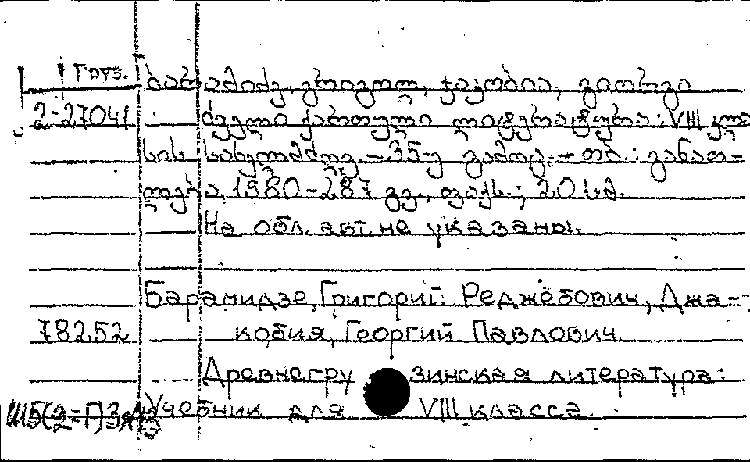 Груз.
ბარამიძე, გრიგოლ, ჯაკობია, გიორგი
2-27041 ძველი ქართული ლიტერატურა: VIII კლა-
სის სახელმძღვ. -35-ე გამოც. - თბ.: განათ-
ლება, 1980 - 287 გვ., ფაქს.; 20 სმ.
На обл. авт. не указаны.
Барамидзе, Григорий Реджебович, Джа-
78252 кобия, Георгий Павлович
Древнегрузинская литература:
Ш5(2=Г)3я73 Учебник для VIII класса.